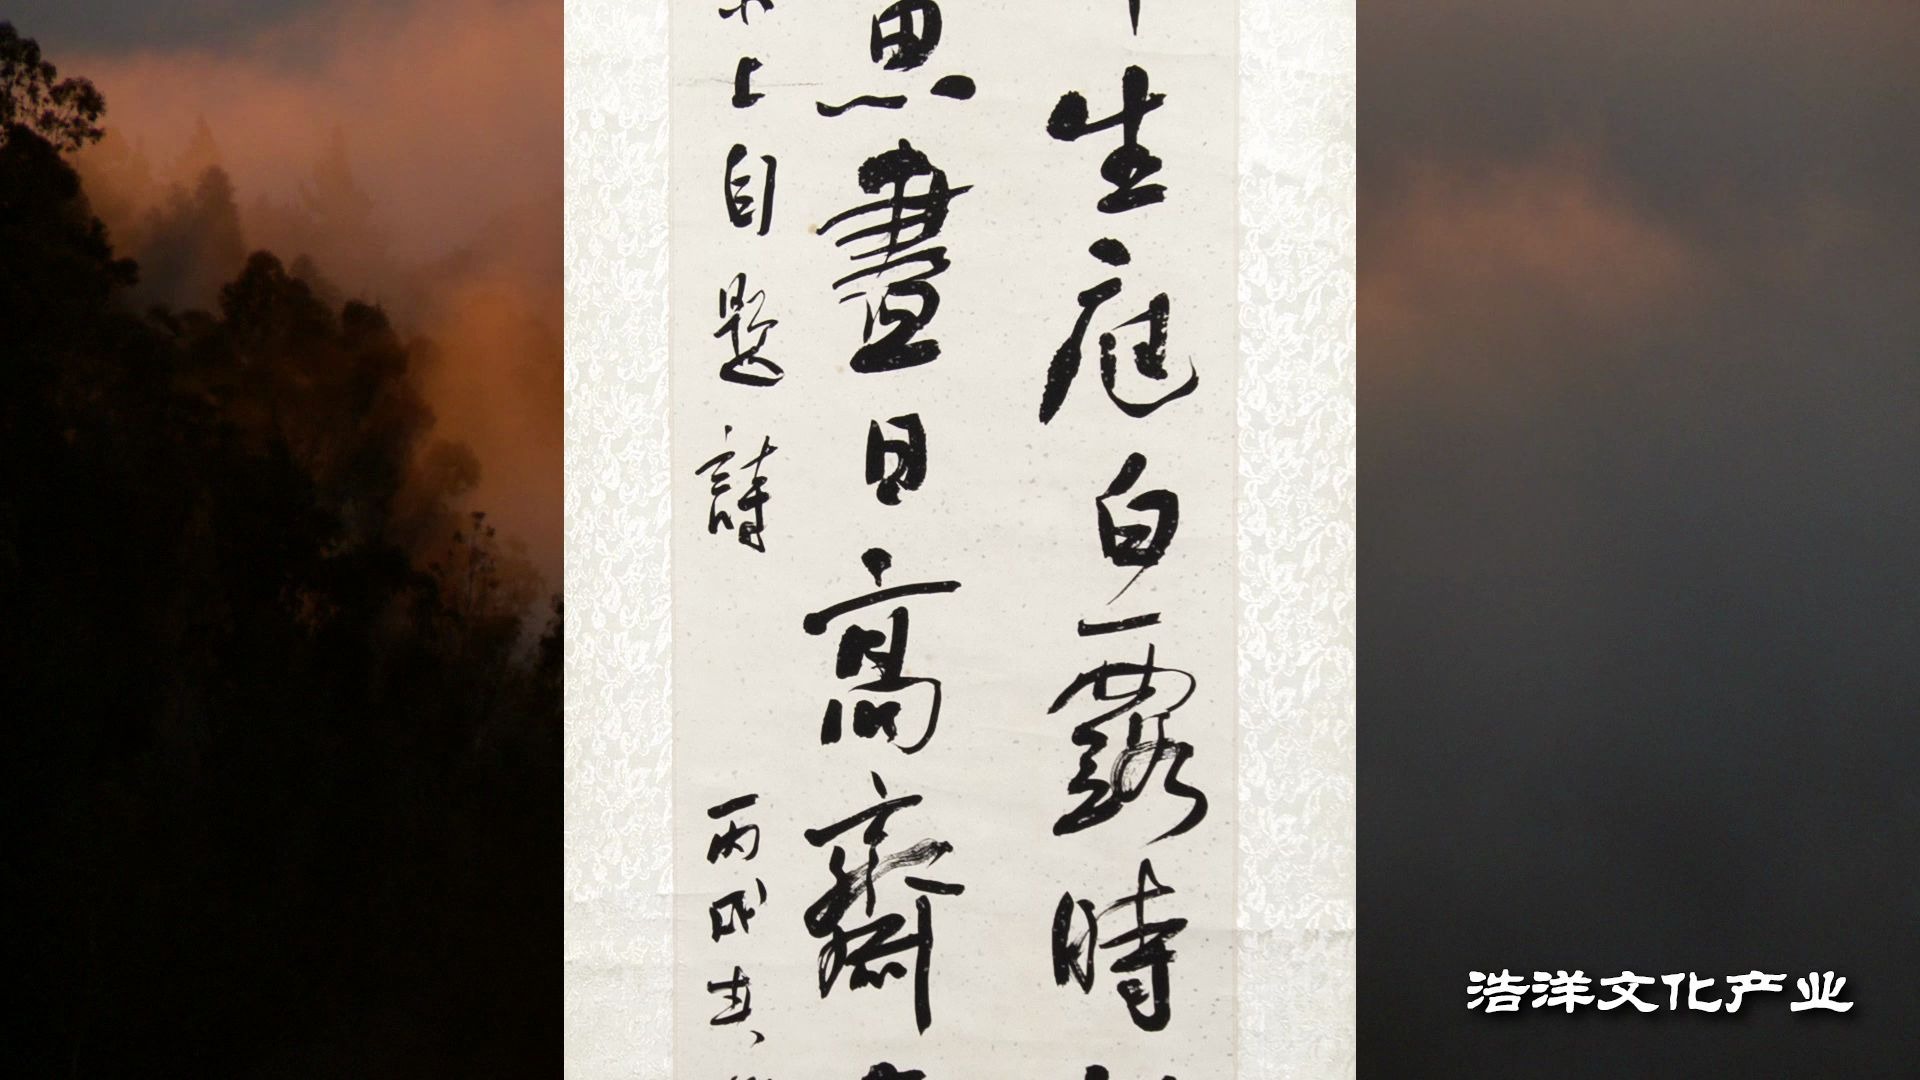 生庭白露時
思晝日高齋
上自題詩 丙戌
浩洋文化产业